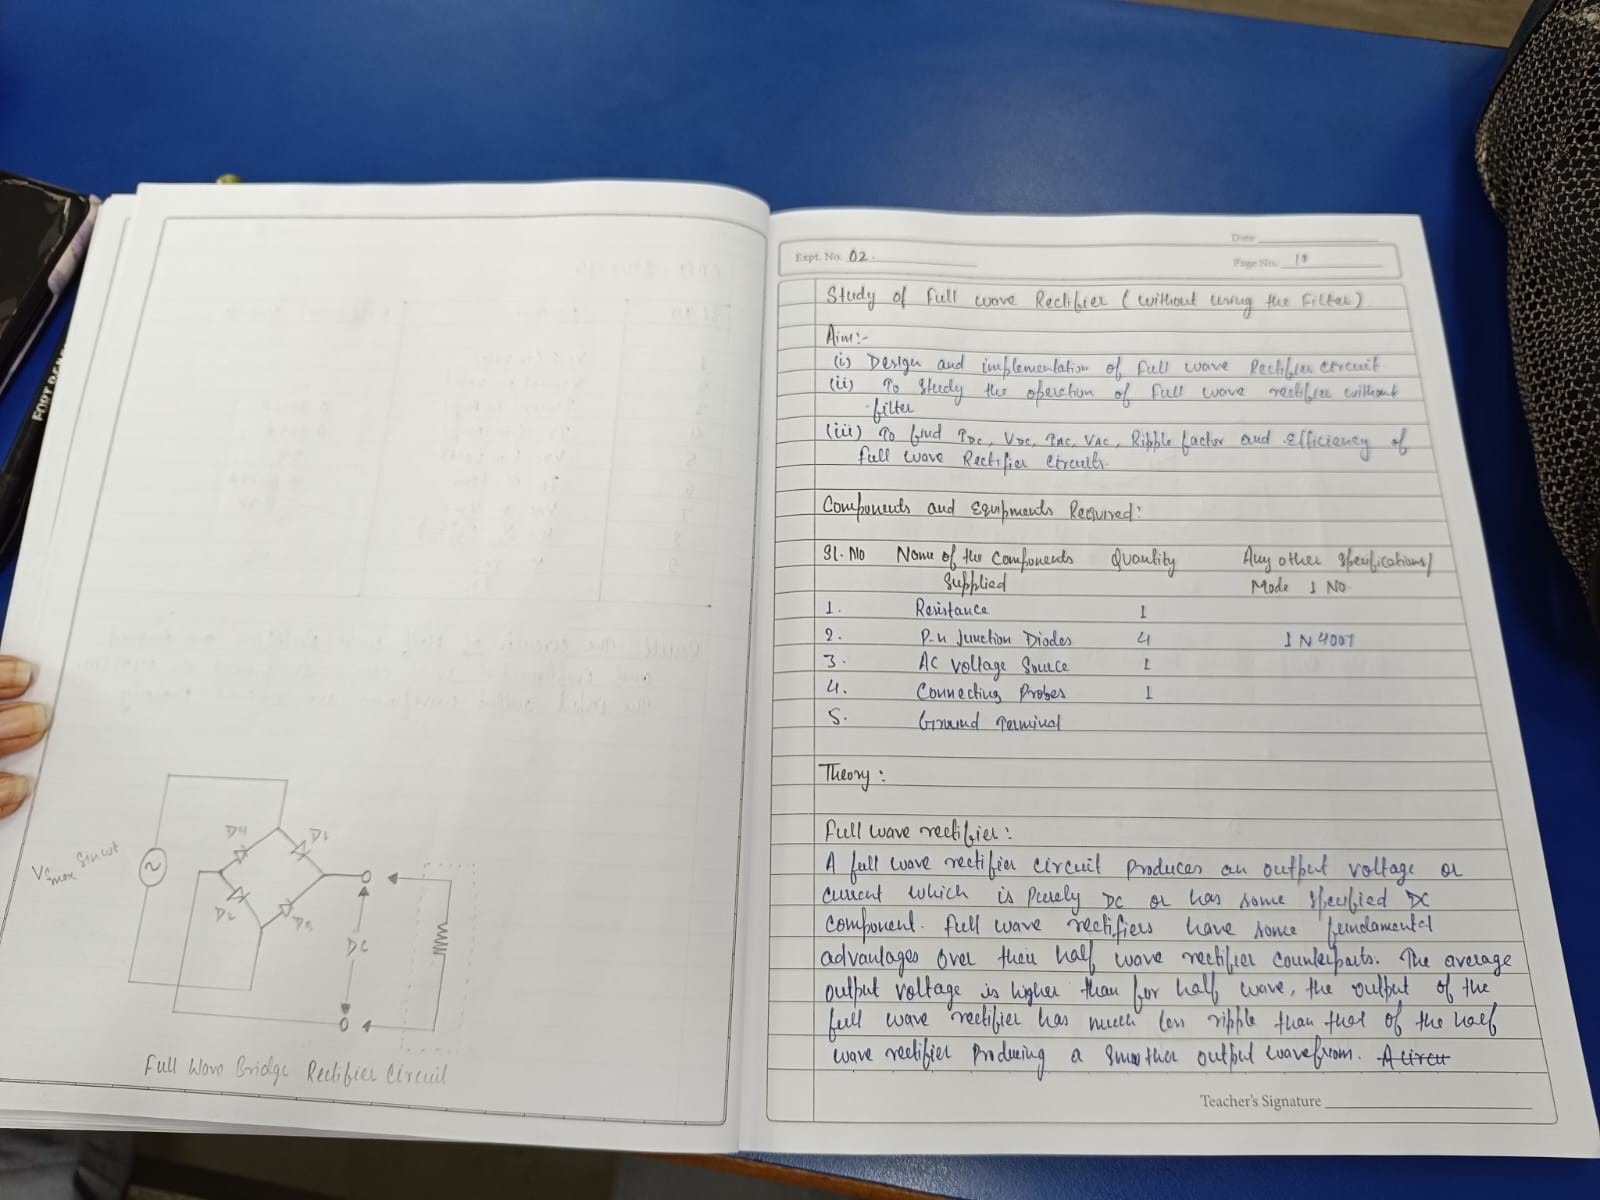 Vsmax Sinωt
D4
D1
D2
D3
DC
Full Wave Bridge Rectifier Circuit
Date
Expt. No. 02.
Page No. 18
Study of Full wave Rectifier (without using the Filter)
Aim:-
(i) Design and implementation of full wave Rectifier circuit
(ii) To study the operation of full wave rectifier without
filter
(iii) To find IDC, VDC, IAC, VAC, Ripple factor and efficiency of
full wave Rectifier circuits.
Components and Equipments Required:
Sl. No Name of the Components Quantity Any other Specifications/
Supplied Mode l No.
1. Resistance 1
2. P-n Junction Diodes 4 1N4007
3. AC Voltage Source 1
4. Connecting Probes 1
5. Ground Terminal
Theory:
Full wave rectifier:
A full wave rectifier circuit produces an output voltage or
current which is purely DC or has some specified DC
component. Full wave rectifiers have some fundamental
advantages over their half wave rectifier counterparts. The average
output voltage is higher than for half wave, the output of the
full wave rectifier has much less ripple than that of the half
wave rectifier producing a smoother output wavefrom. A circu
Teacher's Signature